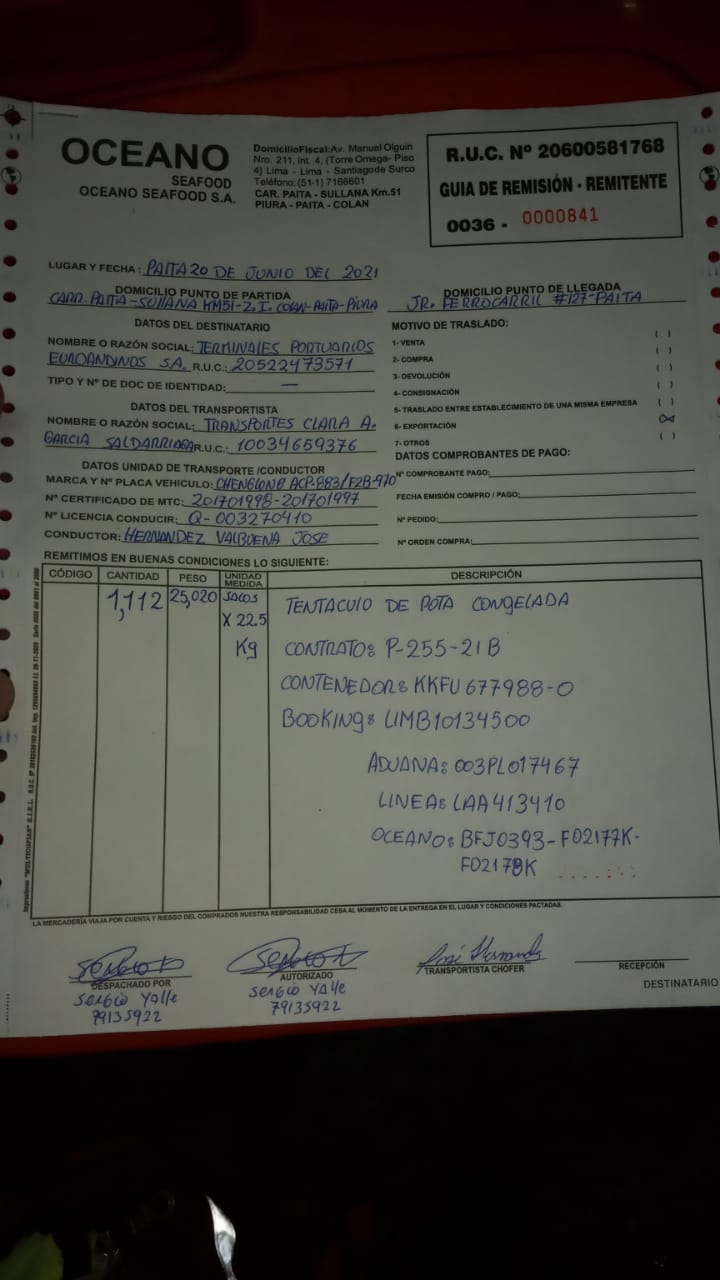 OCEANO
SEAFOOD
OCEANO SEAFOOD S.A.
DomicilioFiscal:Av. Manuel Olguin
Nro. 211, Int. 4, (Torre Omega- Piso
4) Lima - Lima - Santiagode Surco
Teléfono:(51-1) 7166601
CAR. PAITA - SULLANA Km.51
PIURA - PAITA - COLAN
R.U.C. Nº 20600581768
GUIA DE REMISIÓN - REMITENTE
0036 - 0000841
LUGAR Y FECHA : PAITA 20 DE JUNIO DEL 2021
DOMICILIO PUNTO DE PARTIDA
CARR. PAITA-SULLANA KM51-Z.I. COLAN-PAITA-PIURA
DOMICILIO PUNTO DE LLEGADA
JR. FERROCARRIL #127-PAITA
DATOS DEL DESTINATARIO
NOMBRE O RAZÓN SOCIAL: TERMINALES PORTUARIOS
EUROANDINOS S.A. R.U.C.: 20522473571
TIPO Y Nº DE DOC DE IDENTIDAD: —
DATOS DEL TRANSPORTISTA
NOMBRE O RAZÓN SOCIAL: TRANSPORTES CLARA A.
GARCIA SALDARRIAGA R.U.C.: 10034659376
DATOS UNIDAD DE TRANSPORTE /CONDUCTOR
MARCA Y Nº PLACA VEHICULO: CHENGLONG ACP-883/F2B-970
Nº CERTIFICADO DE MTC: 201701998-201701997
Nº LICENCIA CONDUCIR: Q-003270410
CONDUCTOR: HERNANDEZ VALBUENA JOSE
MOTIVO DE TRASLADO:
1- VENTA ( )
2- COMPRA ( )
3- DEVOLUCIÓN ( )
4- CONSIGNACIÓN ( )
5- TRASLADO ENTRE ESTABLECIMIENTO DE UNA MISMA EMPRESA ( )
6- EXPORTACIÓN (X)
7- OTROS ( )
DATOS COMPROBANTES DE PAGO:
Nº COMPROBANTE PAGO:
FECHA EMISIÓN COMPRO / PAGO:
Nº PEDIDO:
Nº ORDEN COMPRA:
REMITIMOS EN BUENAS CONDICIONES LO SIGUIENTE:
CÓDIGO CANTIDAD PESO UNIDAD MEDIDA DESCRIPCIÓN
1,112 25,020 SACOS TENTACULO DE POTA CONGELADA
X 22.5
Kg CONTRATO: P-255-21B
CONTENEDOR: KKFU 677988-0
BOOKING: LIMB10134500
ADUANA: 003PL017467
LINEA: LAA413410
OCEANO: BFJ0393-F02177K-
F02178K
LA MERCADERÍA VIAJA POR CUENTA Y RIESGO DEL COMPRADOS NUESTRA RESPONSABILIDAD CESA AL MOMENTO DE LA ENTREGA EN EL LUGAR Y CONDICIONES PACTADAS.
DESPACHADO POR
Sergio Yalle
79135922
AUTORIZADO
Sergio Yalle
79135922
José Hernandez
TRANSPORTISTA CHOFER
RECEPCIÓN
DESTINATARIO